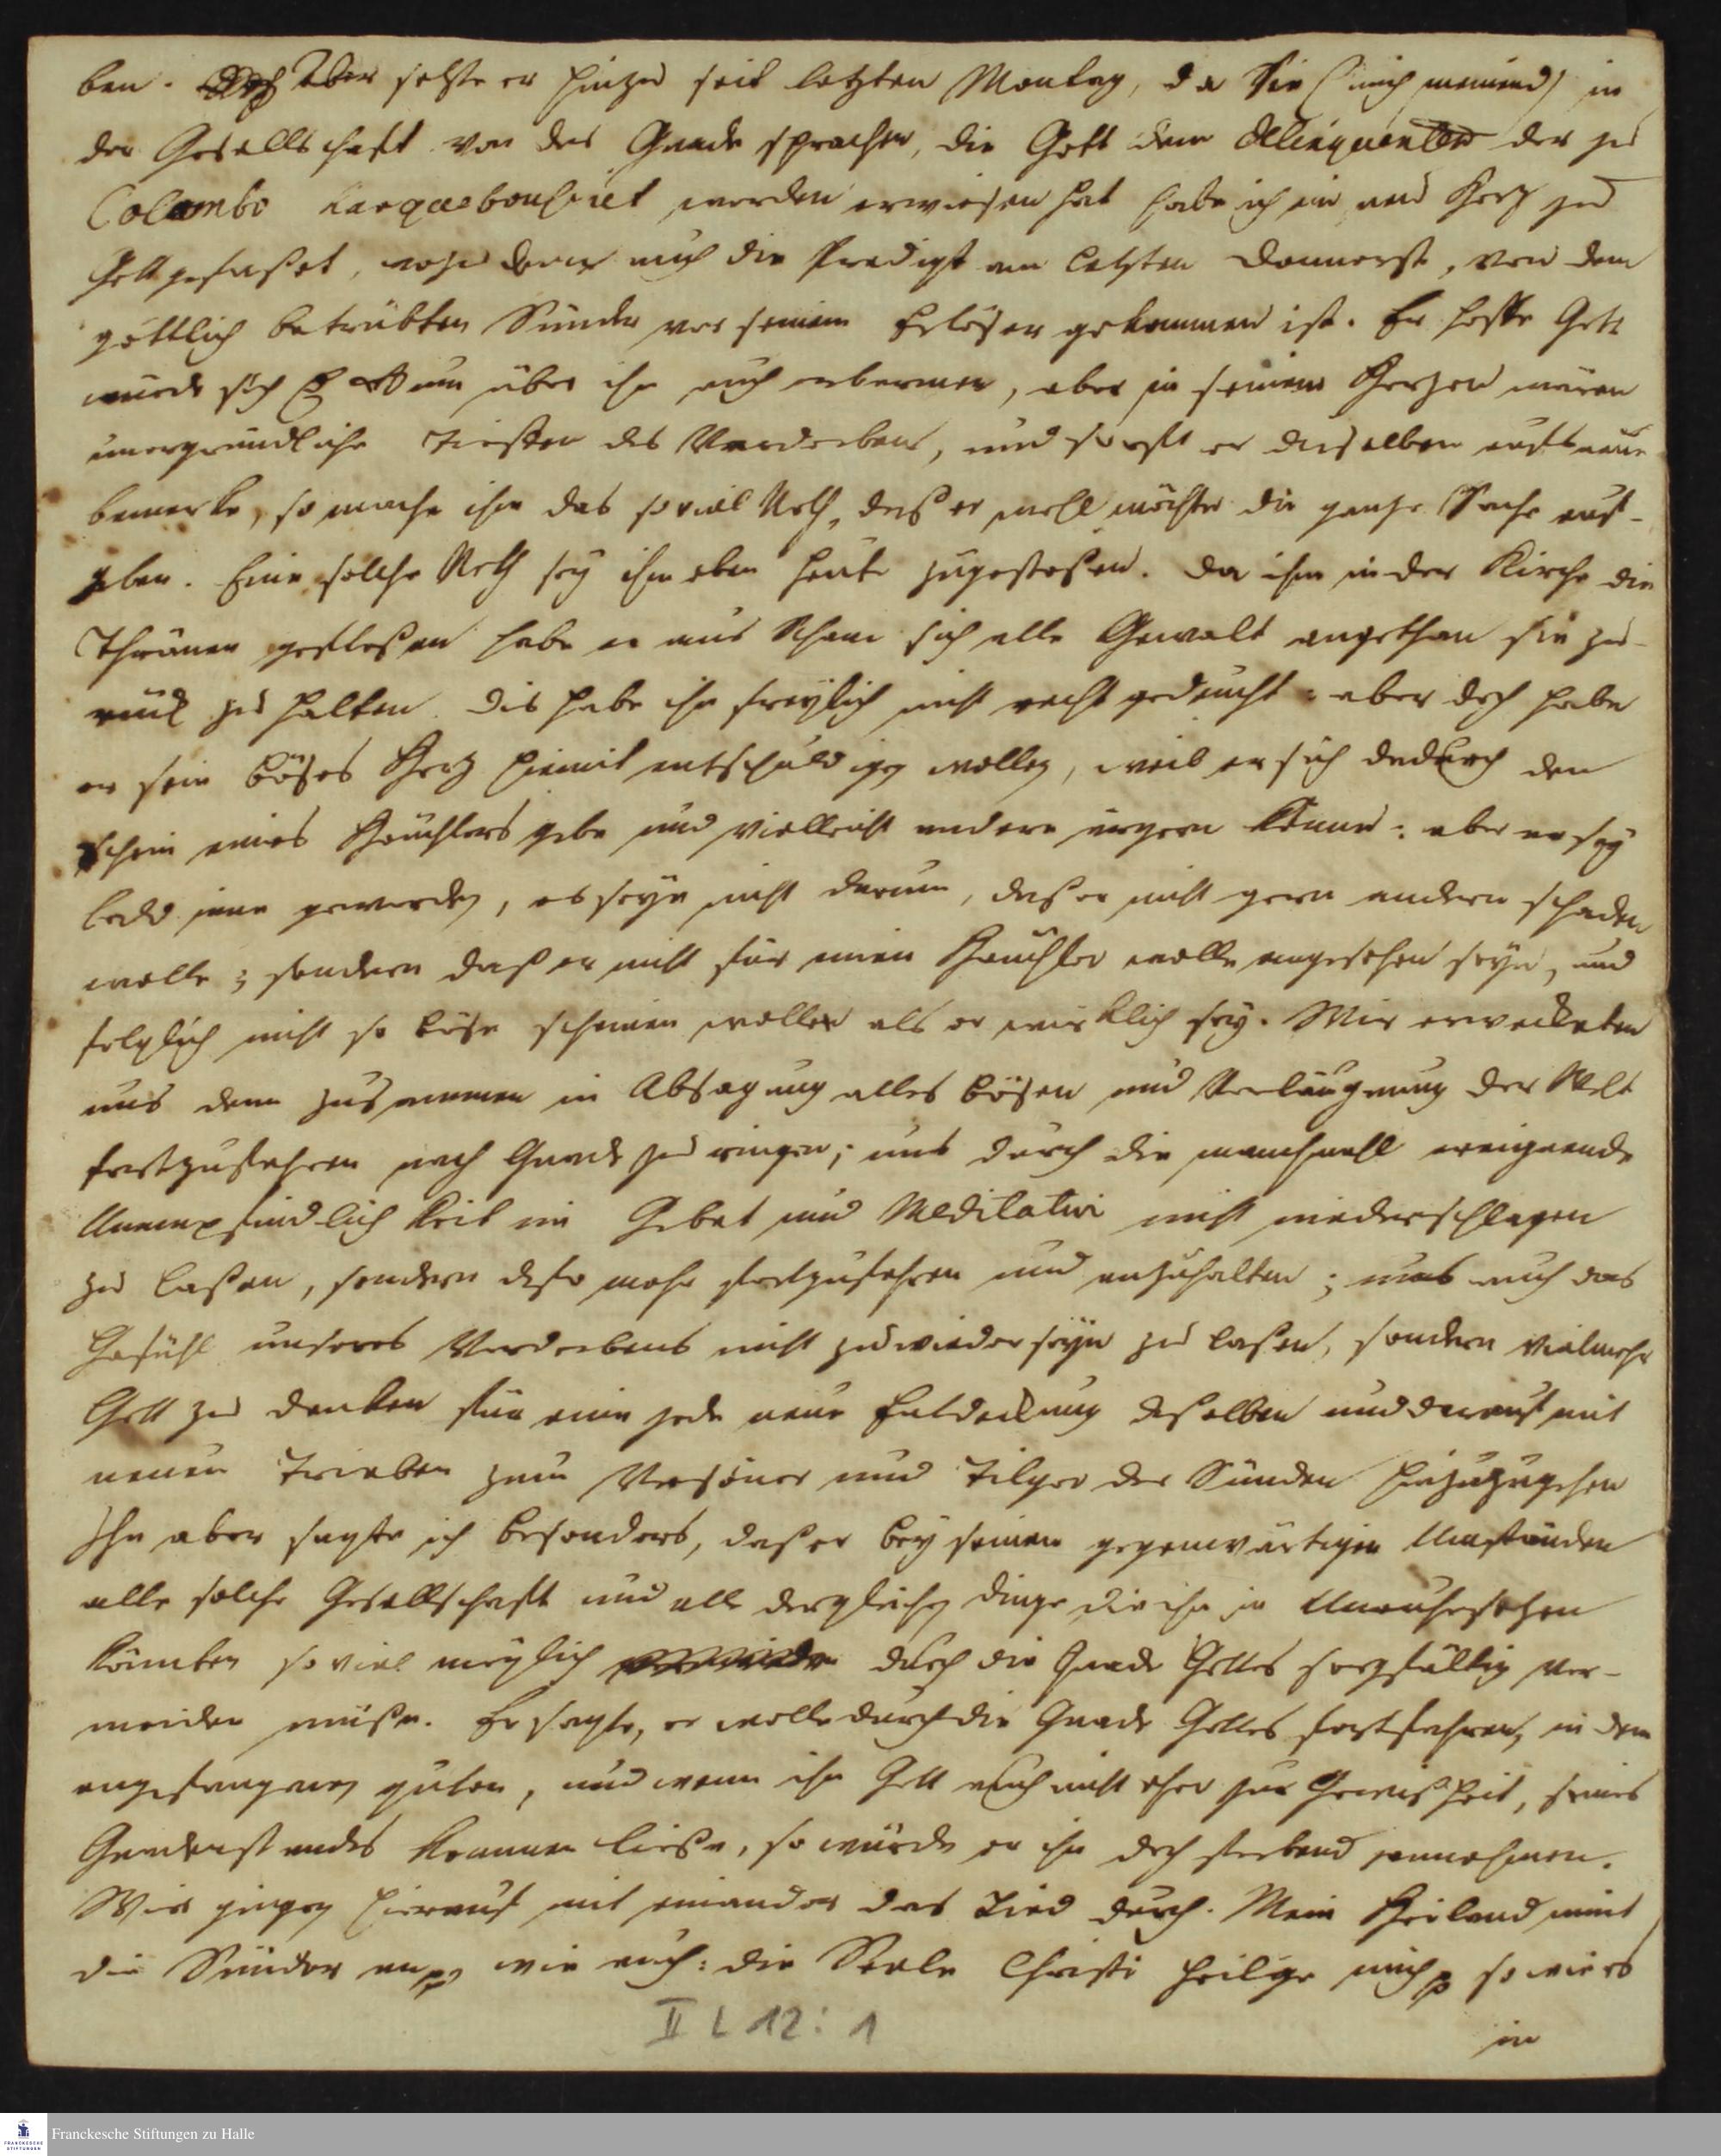 ben. Aber setzte er hinzu seit letzten Montag, da Sie (mich meinend) in
der Gesellschaft von der Gnade sprachen, die Gott dem Delinquenten der zu
Colombo harquebousiret worden erwiesen hat habe ich ein neu Herz zu
Gott gefaßet, wozu denn auch die Predigt am letzten Donnerst, von dem
göttlich betrübten Sünder vor seinem Erlöser gekommen ist. Er hoffe Gott
würde sich nun über ihn auch erbarmen, aber in seinem Herzen wären
unergründliche Tieffen des Verderbens, und so oft er dieselben aufs neue
bemerke, so mache ihm das so viel Noth, daß er wohl möchte die ganze Sache auf-
geben. Eine solche Noth sey ihm eben heute zugestoßen. Da ihm in der Kirche die
Thränen gefloßen habe er aus Scham sich alle Gewalt angethan sie zu-
rück zu halten. Dis habe ihn freylich nicht recht gedeucht: aber doch habe
er sein böses Herz hiemit entschuldigen wollen, weil er sich dadurch den
Schein eines Heuchlers gebe und vielleicht andere ärgern könne: aber er sey
bald inne geworden, es seye nicht darum, daß er nicht gern andern schaden
wolle; sondern daß er nicht für einen Heuchler wolle angesehen seyn, und
folglich nicht so böse scheinen wollen als er wircklich sey. Wir erweckten
uns denn zusammen in Absagung alles bösen und Verläugnung der Welt
fortzufahren nach Gnade zu ringen; uns durch die manchmahl ereignende
Unempfindlichkeit im Gebet und Meditation nicht niederschlagen
zu laßen, sondern desto mehr fortzufahren und anzuhalten; uns auch das
Gefühl unseres Verderbens nicht zuwieder seyn zu laßen, sondern vielmehr
Gott zu danken für eine jede neue Entdeckung deßelben und darauf mit
neuen Trieben zum Versöner und Tilger der Sünden hinzuzugehen
Ihn aber sagte ich besonders, daß er bey seinen gegenwärtigen Umständen
alle solche Gesellschaft und alle dergleichen Dinge die ihn in Unruhe setzen
könnten so viel möglich durch die Gnade Gottes sorgfältig ver-
meiden müße. Er sagte, er wolle durch die Gnade Gottes fortfahren, in dem
angefangenen guten, und wenn ihn Gott auch nicht eher zur Gewißheit, seines
Gnadenstandes kommen ließe, so würde er ihn doch sterbend annehmen.
Wir gingen hierauf mit einander das Lied durch. Mein Heiland nimt
die Sünder an p wie auch: die Seele Christi heilige mich p so wie es
in
II L 12: 1
Franckesche Stiftungen zu Halle
FRANCKESCHE
STIFTUNGEN